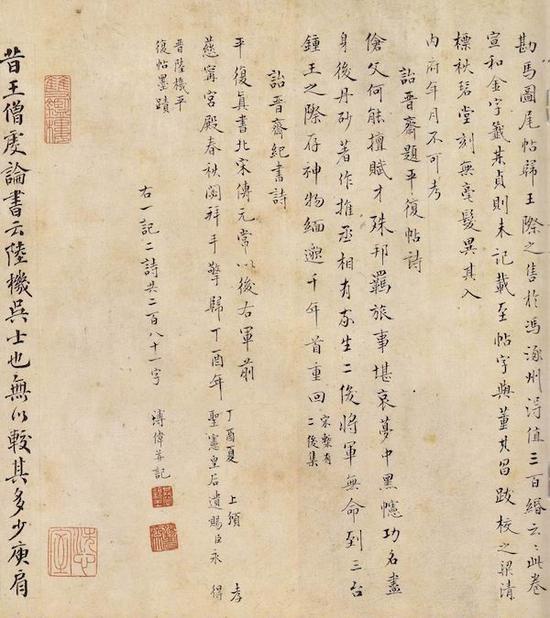 勘馬圖尾帖歸王際之售於馮涿州得值三百緡云云此卷
宣和金字籤某貞則未記載至帖字與董其昌跋校之梁清
標秋碧堂刻無毫髮異其入
內府年月不可考
詒晉齋題平復帖詩
傖父何能擅賦才殊邦羈旅事堪哀夢中黑幰功名盡
身後丹砂著作推丞相有家生二俊將軍無命到三台
鍾王之際存神物緬邈千年首重回
宋槧有
二俊集
詒晉齋紀書詩
平復真書北宋傳元常以後右軍前
慈寧宮殿春秋閟拜手擎歸丁酉年
丁酉夏 上頒 孝
聖憲皇后遺賜臣永 得
晉陸機平
復帖墨蹟
右一記二詩共二百八十一字
溥偉并記
昔王僧虔論書云陸機吳士也無以較其多少庾肩